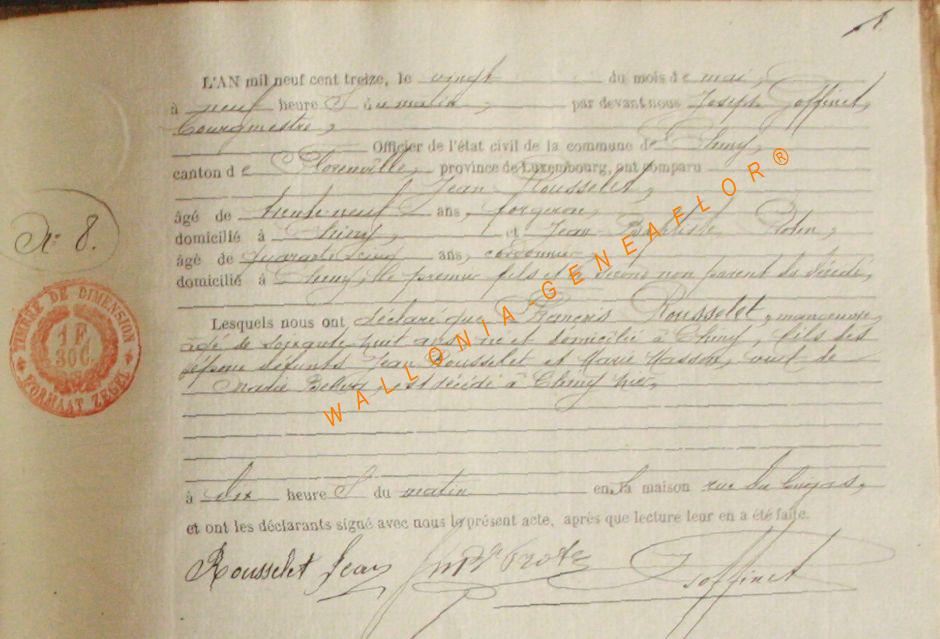 1
L'AN mil neuf cent treize, le vingt du mois de mai,
à neuf heure s du matin, par devant nous Joseph Goffinet,
bourgmestre,
Officier de l'état civil de la commune de Chiny,
canton de Florenville, province de Luxembourg, ont comparu
Jean Rousselet,
âgé de trente-neuf ans, forgeron,
domicilié à Chiny, et Jean Baptiste
âgé de quarante ans, cordonnier
domicilié à Chiny, le premier fils et le second non parent du décédé,
Lesquels nous ont déclaré que François Rousselet, manoeuvre,
âgé de soixante huit ans, né et domicilié à Chiny, fils des
époux défunts Jean Rousselet et Marie Masson, veuf de
Marie est décédé à Chiny hier,
à dix heure s du matin en sa maison rue du
et ont les déclarants signé avec nous le présent acte, après que lecture leur en a été faite.
Rousselet Jean Goffinet
No 8.
TIMBRE DE DIMENSION
1 F.
30 C.
FORMAAT ZEGEL
WALLONIA GENEAFLOR®